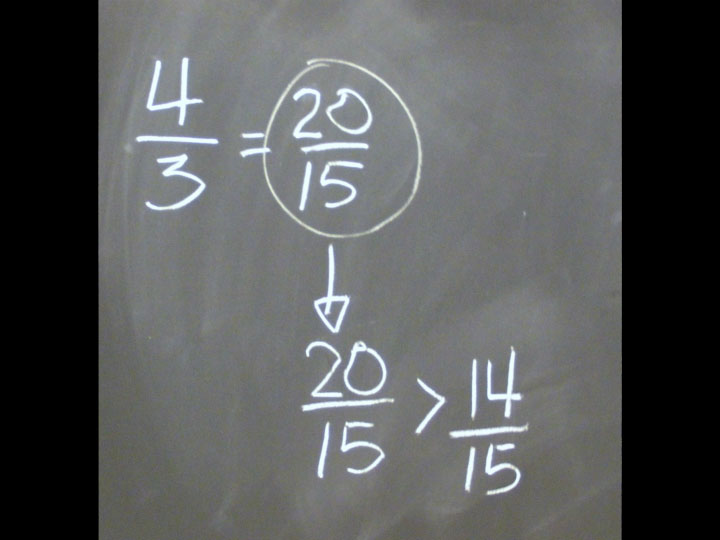 4/3 = 20/15
20/15 > 14/15